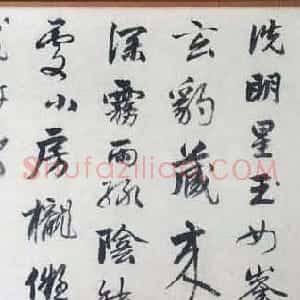 洗明星玉女峯
玄豹藏来
深霧雨緑陰
處小房櫳
Shufaziliao.com